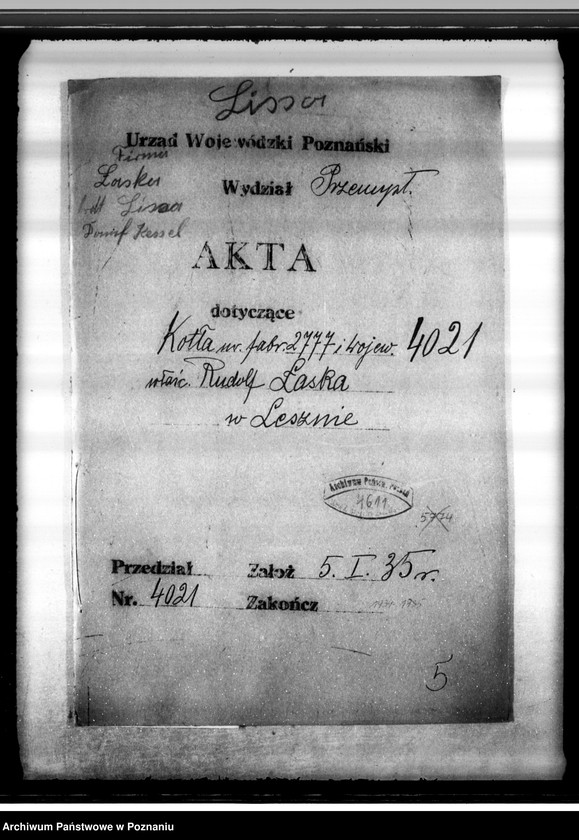 Lissa
Urząd Wojewódzki Poznański
Firma
Laska
Lissa
Kessel
Wydział Przemysł.
AKTA
dotyczące
Kotła nr. fabr. 2777 i wojew. 4021
właśc. Rudolf Łaska
w Lesznie
Archiwum Państw. Poznań
4611
5774
Przedział
Założ 5. I. 35 r.
Nr. 4021
Zakończ
5
Archiwum Państwowe w Poznaniu